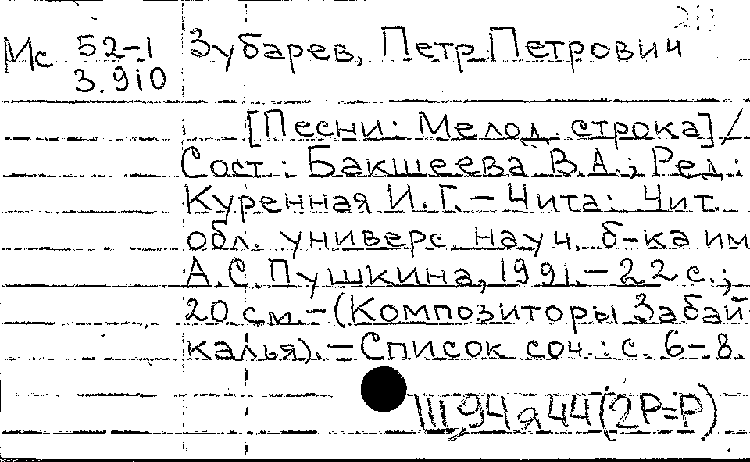 Мс 52-1 Зубарев, Петр Петрович
3.910
[Песни: Мелод. строка] /
Сост.: Бакшеева В.А.; Ред.:
Куренная И.Г. – Чита: Чит.
обл. универс. науч. б-ка им
А.С. Пушкина, 1991. – 22 с.;
20 см. – (Композиторы Забай
калья). – Список соч.: с. 6-8.
Щ,94я44(2Р=Р)